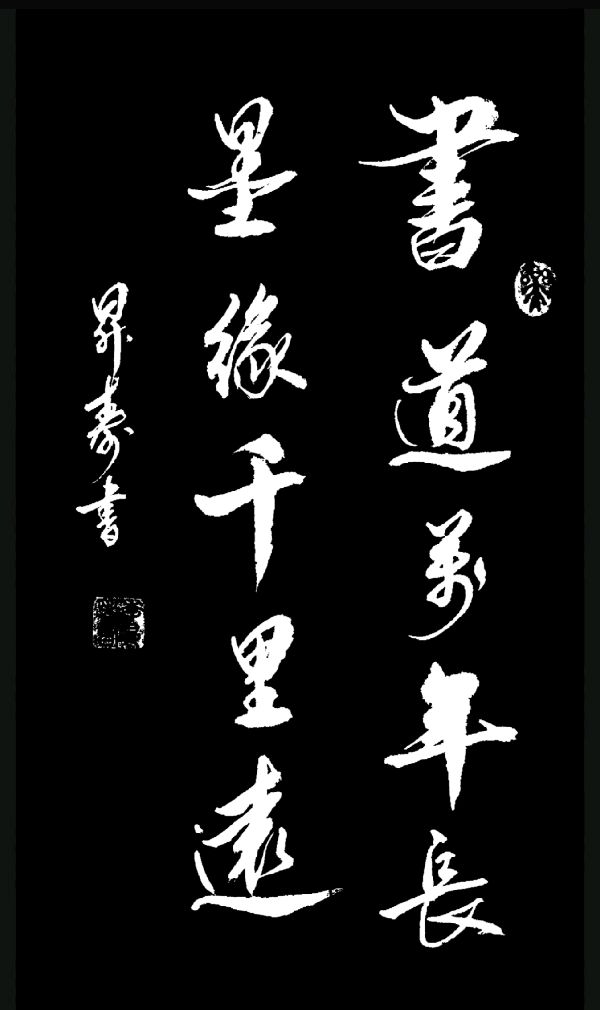 書道萬年長
墨緣千里遠
昇壽書